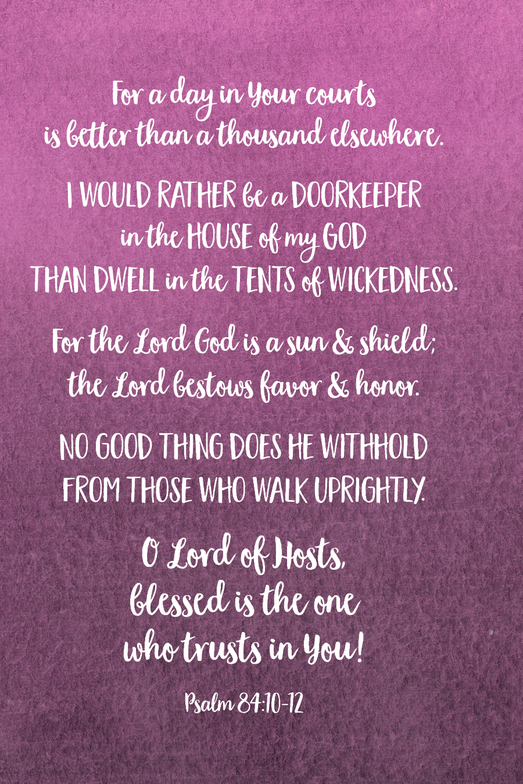 For a day in Your courts
is better than a thousand elsewhere.
I WOULD RATHER be a DOORKEEPER
in the HOUSE of my GOD
THAN DWELL in the TENTS of WICKEDNESS.
For the Lord God is a sun & shield;
the Lord bestows favor & honor.
NO GOOD THING DOES HE WITHHOLD
FROM THOSE WHO WALK UPRIGHTLY.
O Lord of Hosts,
blessed is the one
who trusts in You!
Psalm 84:10-12